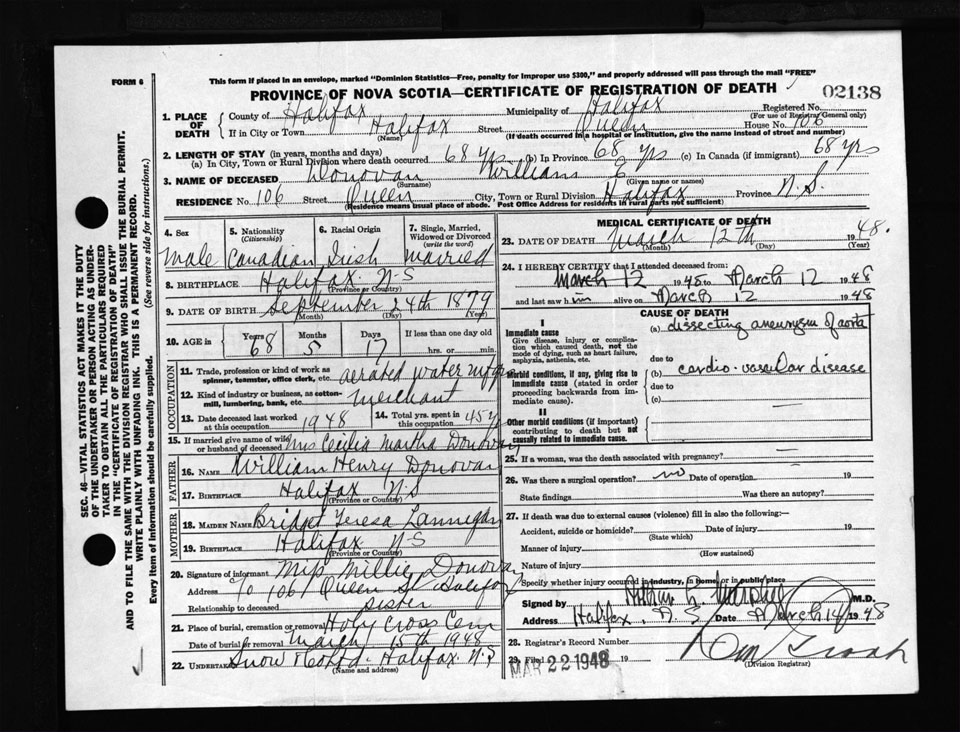 FORM 6
This form if placed in an envelope, marked "Dominion Statistics—Free, penalty for improper use $300," and properly addressed will pass through the mail "FREE"
PROVINCE OF NOVA SCOTIA—CERTIFICATE OF REGISTRATION OF DEATH
02138
1. PLACE OF DEATH
County of Halifax Municipality of Halifax Registered No.
(For use of Registrar General only)
If in City or Town Halifax Street Queen House No. 106
(Name) (If death occurred in a hospital or institution, give the name instead of street and number)
2. LENGTH OF STAY (in years, months and days)
(a) In City, Town or Rural Division where death occurred 68 yrs (b) In Province 68 yrs (c) In Canada (if immigrant) 68 yrs
3. NAME OF DECEASED Donovan William E
(Surname) (Given name or names)
RESIDENCE No. 106 Street Queen City, Town or Rural Division Halifax Province N.S.
(Residence means usual place of abode. Post Office Address for residents in rural parts not sufficient)
4. Sex 5. Nationality (Citizenship) 6. Racial Origin 7. Single, Married, Widowed or Divorced (write the word)
Male Canadian Irish Married
8. BIRTHPLACE Halifax N-S
(Province or Country)
9. DATE OF BIRTH September 24th 1879
(Month) (Day) (Year)
10. AGE in Years Months Days If less than one day old
68 5 17 hrs. or min.
OCCUPATION
11. Trade, profession or kind of work as spinner, teamster, office clerk, etc. aerated water mfgr
12. Kind of industry or business, as cotton-mill, lumbering, bank, etc. merchant
13. Date deceased last worked at this occupation 1948 14. Total yrs. spent in this occupation 45 y
15. If married give name of wife or husband of deceased Mrs Cecilia Martha Donovan
FATHER
16. NAME William Henry Donovan
17. BIRTHPLACE Halifax N.S
(Province or Country)
MOTHER
18. MAIDEN NAME Bridget Teresa Lannegan
19. BIRTHPLACE Halifax N-S
(Province or Country)
20. Signature of informant Miss Millie Donovan
Address c/o 106 Queen St Halifax
Relationship to deceased sister
21. Place of burial, cremation or removal Holy Cross Cem
Date of burial or removal March 15th 1948
22. UNDERTAKER Snow & Co Ltd. Halifax N.S
(Name and address)
MEDICAL CERTIFICATE OF DEATH
23. DATE OF DEATH March 12th 1948.
(Month) (Day) (Year)
24. I HEREBY CERTIFY that I attended deceased from:
March 12 1948 to March 12 1948
and last saw him alive on March 12 1948
CAUSE OF DEATH
I
Immediate cause
Give disease, injury or complication which caused death, not the mode of dying, such as heart failure, asphyxia, asthenia, etc.
(a) dissecting aneurysm of aorta
due to
Morbid conditions, if any, giving rise to immediate cause (stated in order proceeding backwards from immediate cause).
(b) cardio-vascular disease
due to
(c)
II
Other morbid conditions (if important) contributing to death but not causally related to immediate cause.
25. If a woman, was the death associated with pregnancy?
26. Was there a surgical operation? no Date of operation 19
State findings Was there an autopsy?
27. If death was due to external causes (violence) fill in also the following:—
Accident, suicide or homicide? Date of injury 19
(State which)
Manner of injury
(How sustained)
Nature of injury
Specify whether injury occurred in industry, in home, or in public place
Signed by M.D.
Address Halifax, N.S. Date March 14 1948
28. Registrar's Record Number
29. Filed MAR 22 1948 19
(Division Registrar)
SEC. 46—VITAL STATISTICS ACT MAKES IT THE DUTY
OF THE UNDERTAKER OR PERSON ACTING AS UNDER-
TAKER TO OBTAIN ALL THE PARTICULARS REQUIRED
IN THE "CERTIFICATE OF REGISTRATION OF DEATH"
AND TO FILE THE SAME WITH THE DIVISION REGISTRAR WHO SHALL ISSUE THE BURIAL PERMIT.
WRITE PLAINLY WITH UNFADING INK. THIS IS A PERMANENT RECORD.
Every item of Information should be carefully supplied. (See reverse side for instructions.)